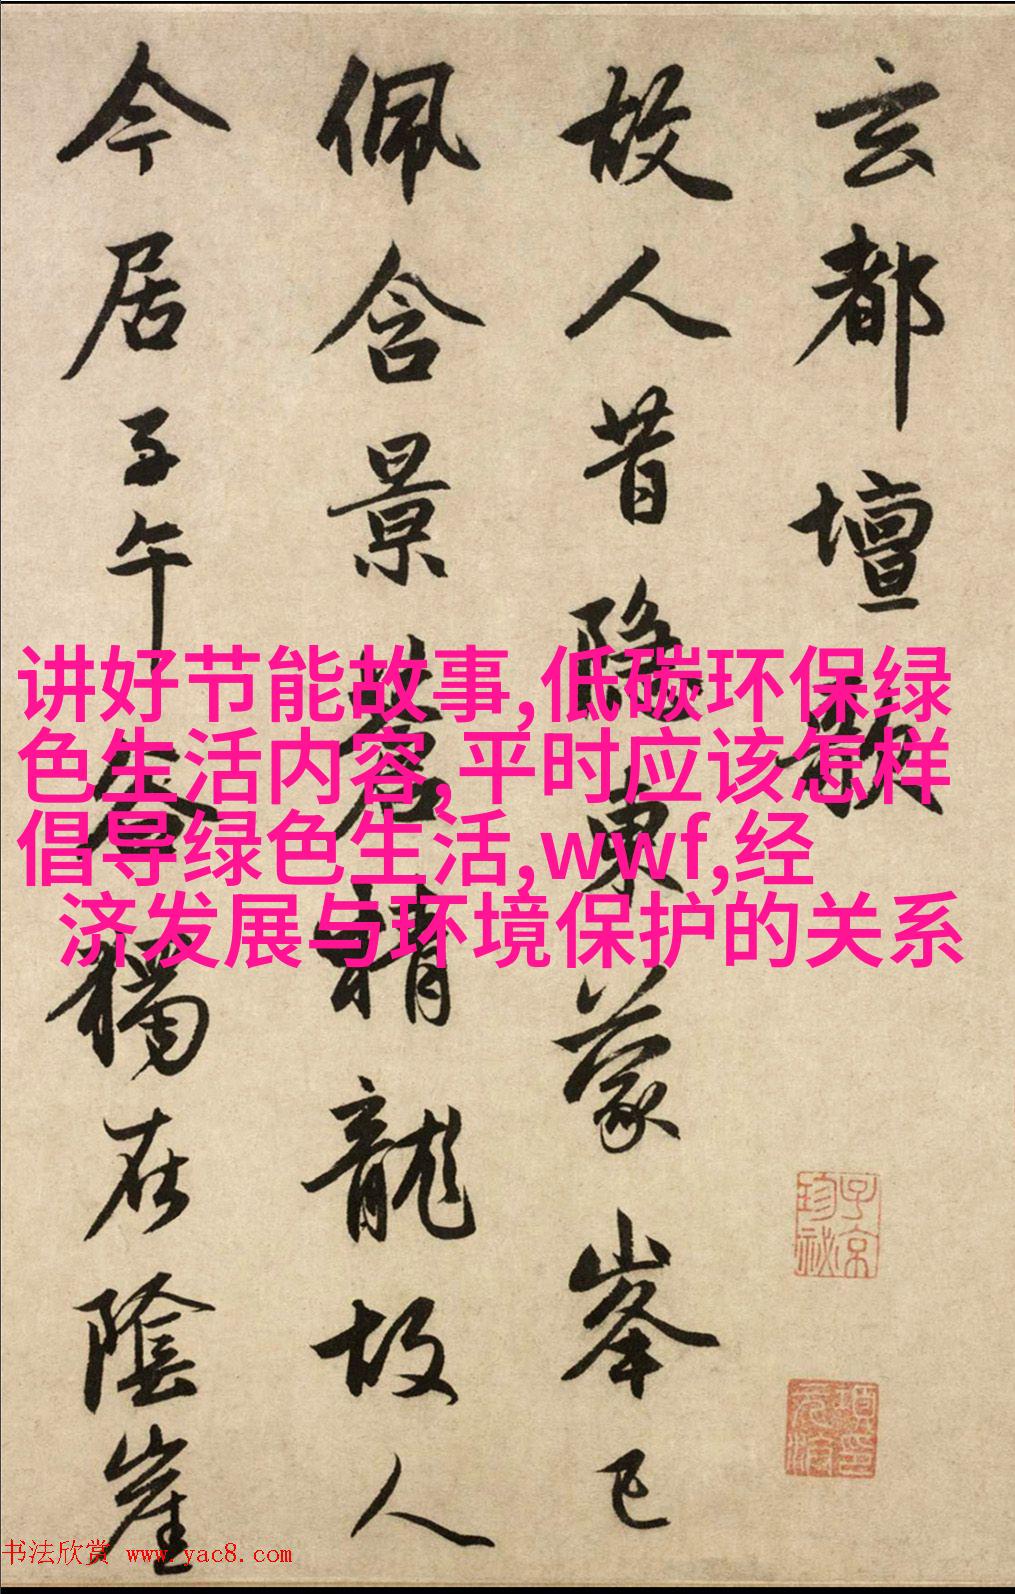 玄都壇歌
故人昔隱東蒙峯已
佩含景蒼精龍故人
今居子午谷獨在陰崖
讲好节能故事,低碳环保绿
色生活内容,平时应该怎样
倡导绿色生活,wwf,经
济发展与环境保护的关系
子京
珍祕
项元汴印
书法欣赏 www.yac8.com